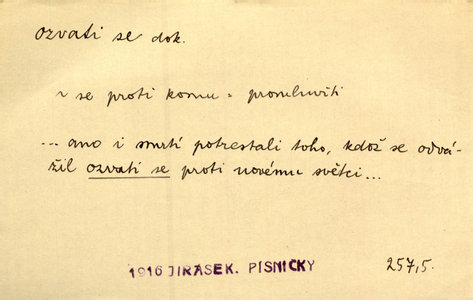 ozvati se dok.
~ se proti komu = promluviti
... ano i smrtí potrestali toho, kdož se odvá-
žil ozvati se proti novému světci...
1916 JIRASEK. PÍSNIČKY
257,5.